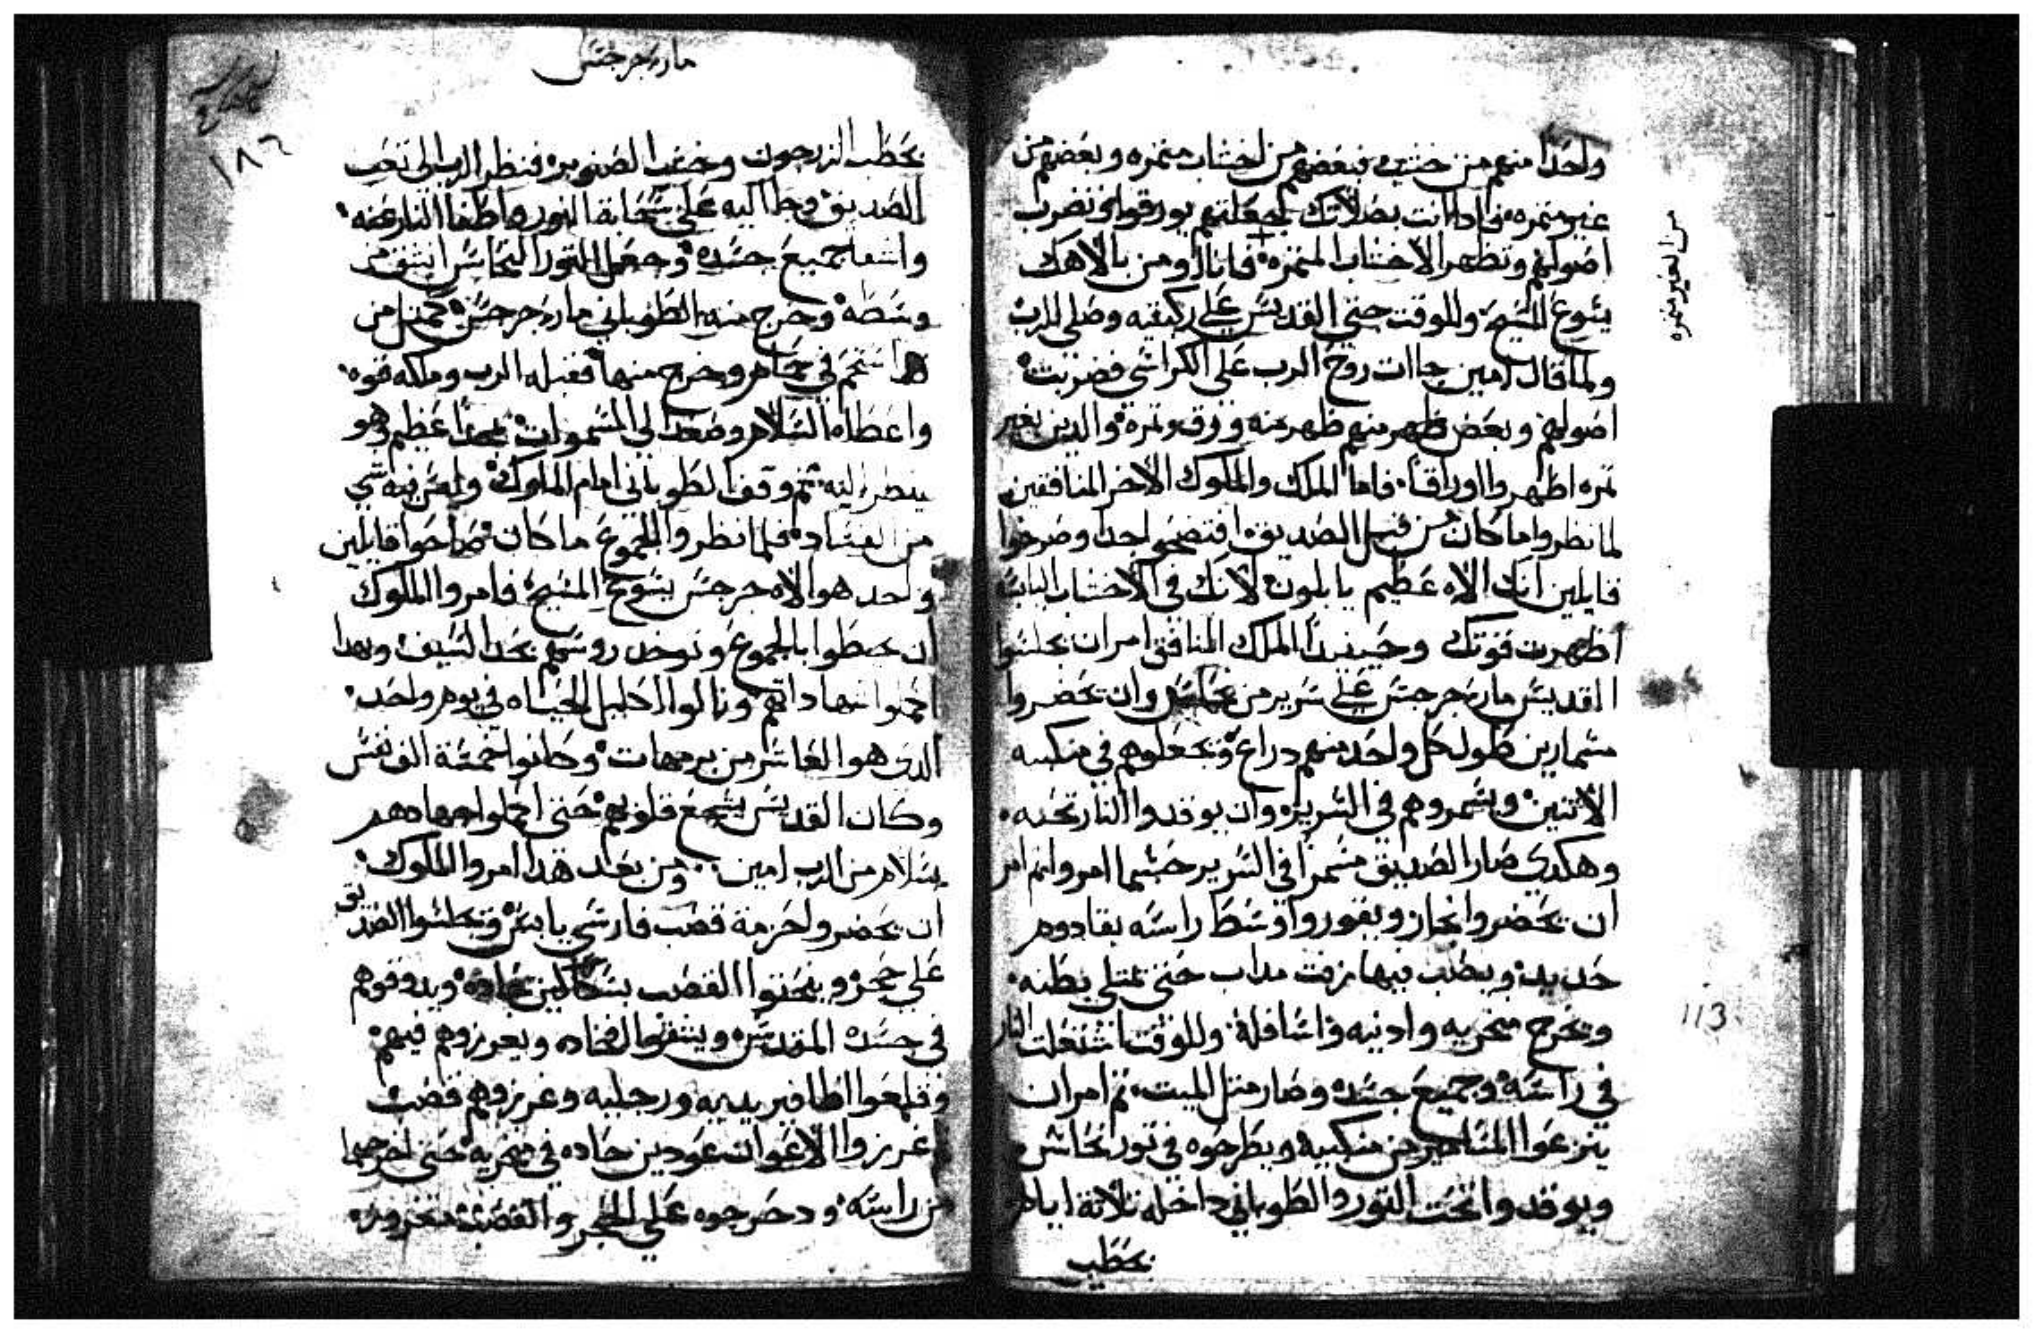 واحدا منهم من خشب فبعضهم من اخشاب متمره وبعضهم من
غير متمره فادا انت بصلاتك جعلتهم يورقوا وتضرب
اصولهم وتظهر الاخشاب المتمره فانا اومن بالاهك
يسوع المسيح وللوقت جتى القديس على ركبتيه وصلى للرب
ولما قال امين جاات روح الرب على الكراسي فضربت
اصولهم وبعض ظهر منهم ظهر منه ورق وتمرة والدين بغير
تمره اظهروا اوراقا فاما الملك والملوك الاخر المنافقين
لما نظروا ما كان من قبل الصديق افتضحوا جدا وصرخوا
قايلين انك الاه عظيم يا بلون لانك في الاخشاب اليابسة
اظهرت قوتك وحينيدا الملك المنافق امر ان يجلسوا
القديس ماري جرجس على سرير من نحاس وان يحضروا
مسمارين طول كل واحد منهم دراع ويجعلوهم في منكبيه
الاتنين ويسمروهم في السرير وان يوقدوا النار تحته
وهكدي صار الصديق مسمرا في السرير حسبما امروا تم امر
ان يحضروا نجار ويقوروا وسط راسه بقادوم
حديد ويصب فيها زفت مداب حتى تمتلي بطنه
وتخرج منخريه وادنيه واسافله وللوقت اشتعلت النار
في راسه وجميع جسده وصار متل الميت تم امر ان
ينزعوا المسامير من منكبيه ويطرحوه في تور نحاس
ويوقدوا تحت التور والطوباني داخله تلاتة ايام
بحطب
من الغير متمره
113
ماري جرجس
١٨٦
بحطب الزرجون وخشب الصنوبر فنظر الرب الى تعب
الصديق وجا اليه على سحابة النور واطفا النار عنه
واشفا جميع جسده وجعل التور النحاس انشق من
وسطه وخرج منه الطوباني ماري جرجس كمتل من
استحم في حمام وخرج منها فقبله الرب وملكه قوه
واعطاه السلام وصعد الى السموات بمجد عظيم وهو
ينظر اليه تم وقف الطوباني امام الملوك وليس فيه شي
من الفساد فلما نظروا الجموع ما كان صاحوا قايلين
واحد هو الاه جرجس يسوع المسيح فامروا الملوك
ان يحيطوا بالجموع وتوخد روسهم بحد السيف وبهدا
اكملوا شهاداتهم ونالوا اكليل الحياه في يوم واحد
الدي هو العاشر من برمهات وكانوا خمسة الف نفس
وكان القديس يشجع قلوبهم حتى اكملوا جهادهم
بسلام من الرب امين ومن بعد هدا امروا الملوك
ان يحضروا حزمة قصب فارسي يابس ويجلسوا الصديق
على حجر وينحتوا القصب بسكاكين حاده ويدقوهم
في جسده المقدس وينتقوا الحاده ويعرزوهم فيهم
وقلعوا اظافير يديه ورجليه وغرزوهم قصب
وغرزوا الاعوان عودين حاده في منخريه حتى اخرجهما
من راسه ودحرجوه على الحجر والقصب مغروزه